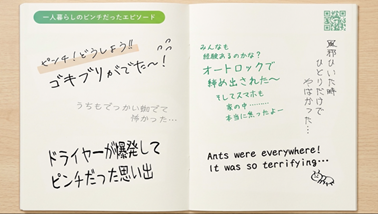 一人暮らしのピンチだったエピソード
ピンチ！どうしよう!!
ゴキブリがでた〜！
うちもでっかい蜘蛛でて
怖かった…
ドライヤーが爆発して
ピンチだった思い出
みんなも
経験あるのかな？
オートロックで
締め出された〜
そしてスマホも
家の中………
本当に焦ったよー
風邪ひいた時
ひとりだけで
やばかった…
Ants were everywhere!
It was so terrifying...